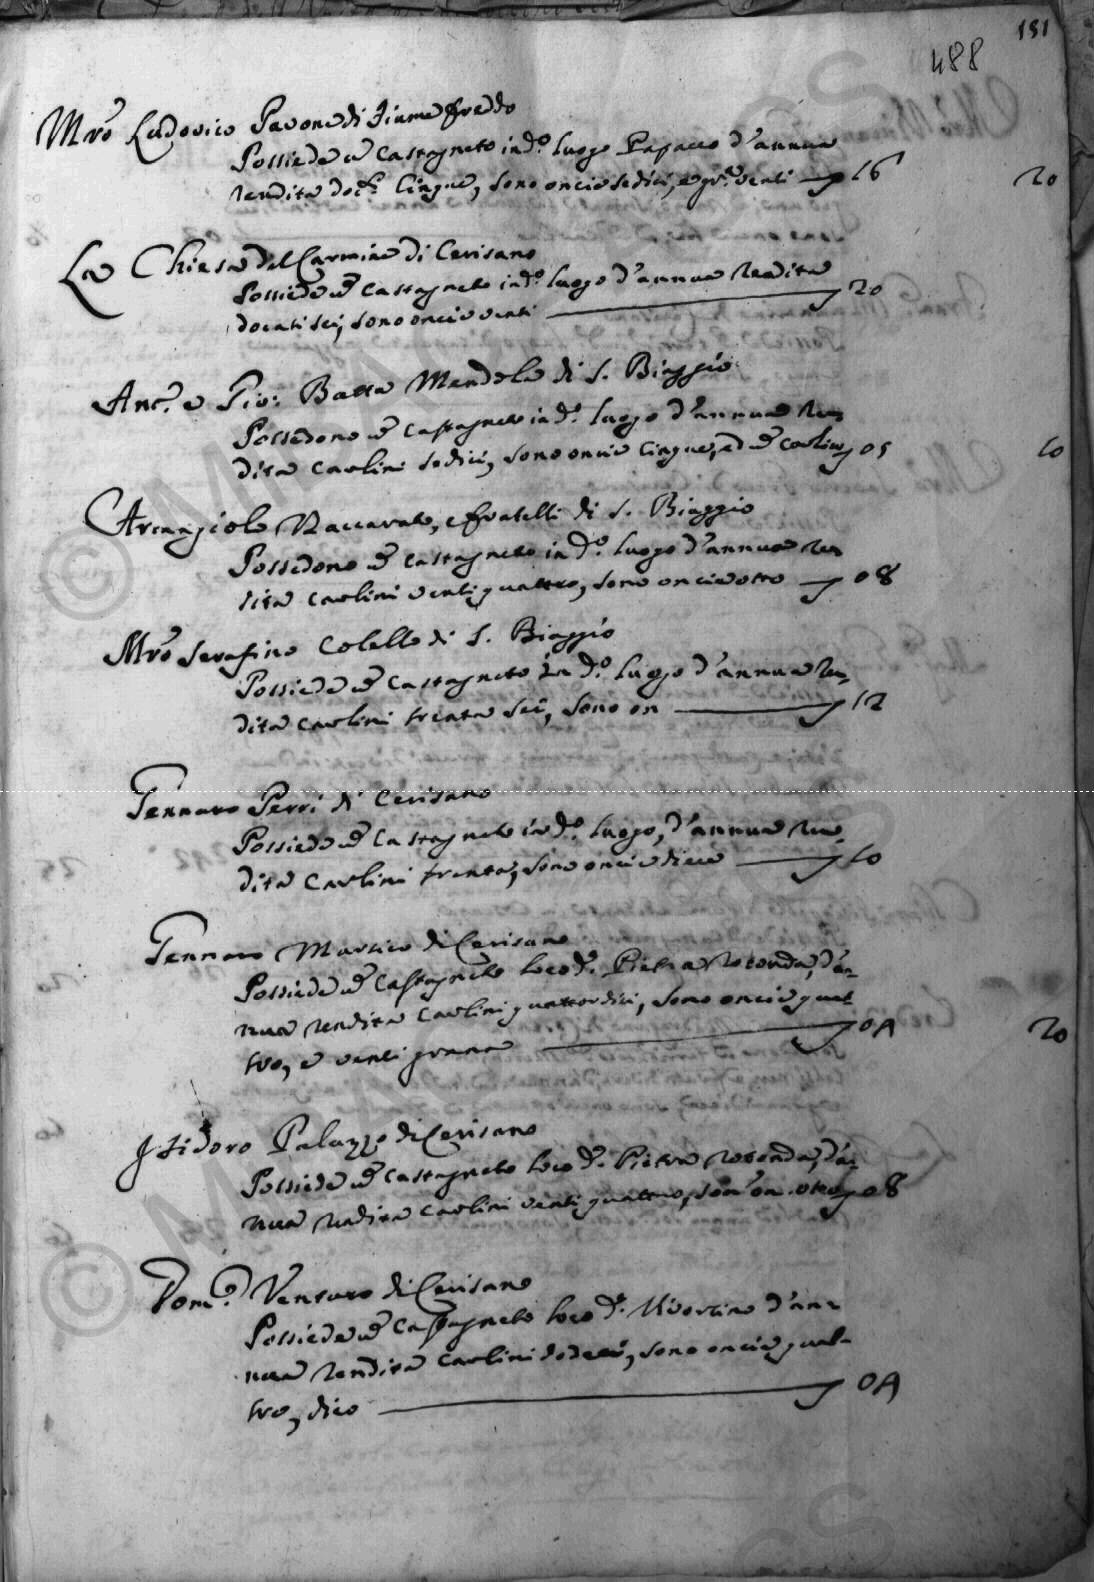 151
488
Mro Ludovico Pavone di Fiume freddo
Possiede un Castagneto in do. luogo Papaceo d'annua
rendita doct. Cinque, sono oncie sedici, e gr. venti 16 20
La Chiesa del Carmine di Cerisano
Possiede un Castagneto in do. luogo d'annua rendita
docati sei, sono oncie venti 20
Ant.o e Gio: Batta Mendola di S. Biaggio
Possedono un Castagneto in do. luogo d'annua ren
dita Carlini sedici, sono oncie Cinque, ed un Carlino 05 10
Arcangiolo Naccarato, e fratelli di S. Biaggio
Possedono un Castagneto in do. luogo d'annua ren
dita Carlini venti quattro, sono oncie otto 08
Mro Serafino Colello di S. Biaggio
Possiede un Castagneto in do. luogo d'annua ren
dita Carlini trenta sei, sono on 12
Gennaro Perri di Cerisano
Possiede un Castagneto in do. luogo, d'annua ren
dita Carlini trenta, sono oncie diece 10
Gennaro Martico di Cerisano
Possiede un Castagneto loco do. Pietra rotonda, d'an
nua rendita Carlini quattordici, sono oncie quat
tro, e venti grana 04 20
Isidoro Palazzo di Cerisano
Possiede un Castagneto loco do. Pietra rotonda, d'an
nua rendita Carlini venti quattro, son on. otto 08
Dom.o Venturo di Cerisano
Possiede un Castagneto loco do. d'an
nua rendita Carlini dodeci, sono oncie quat
tro, dico 04